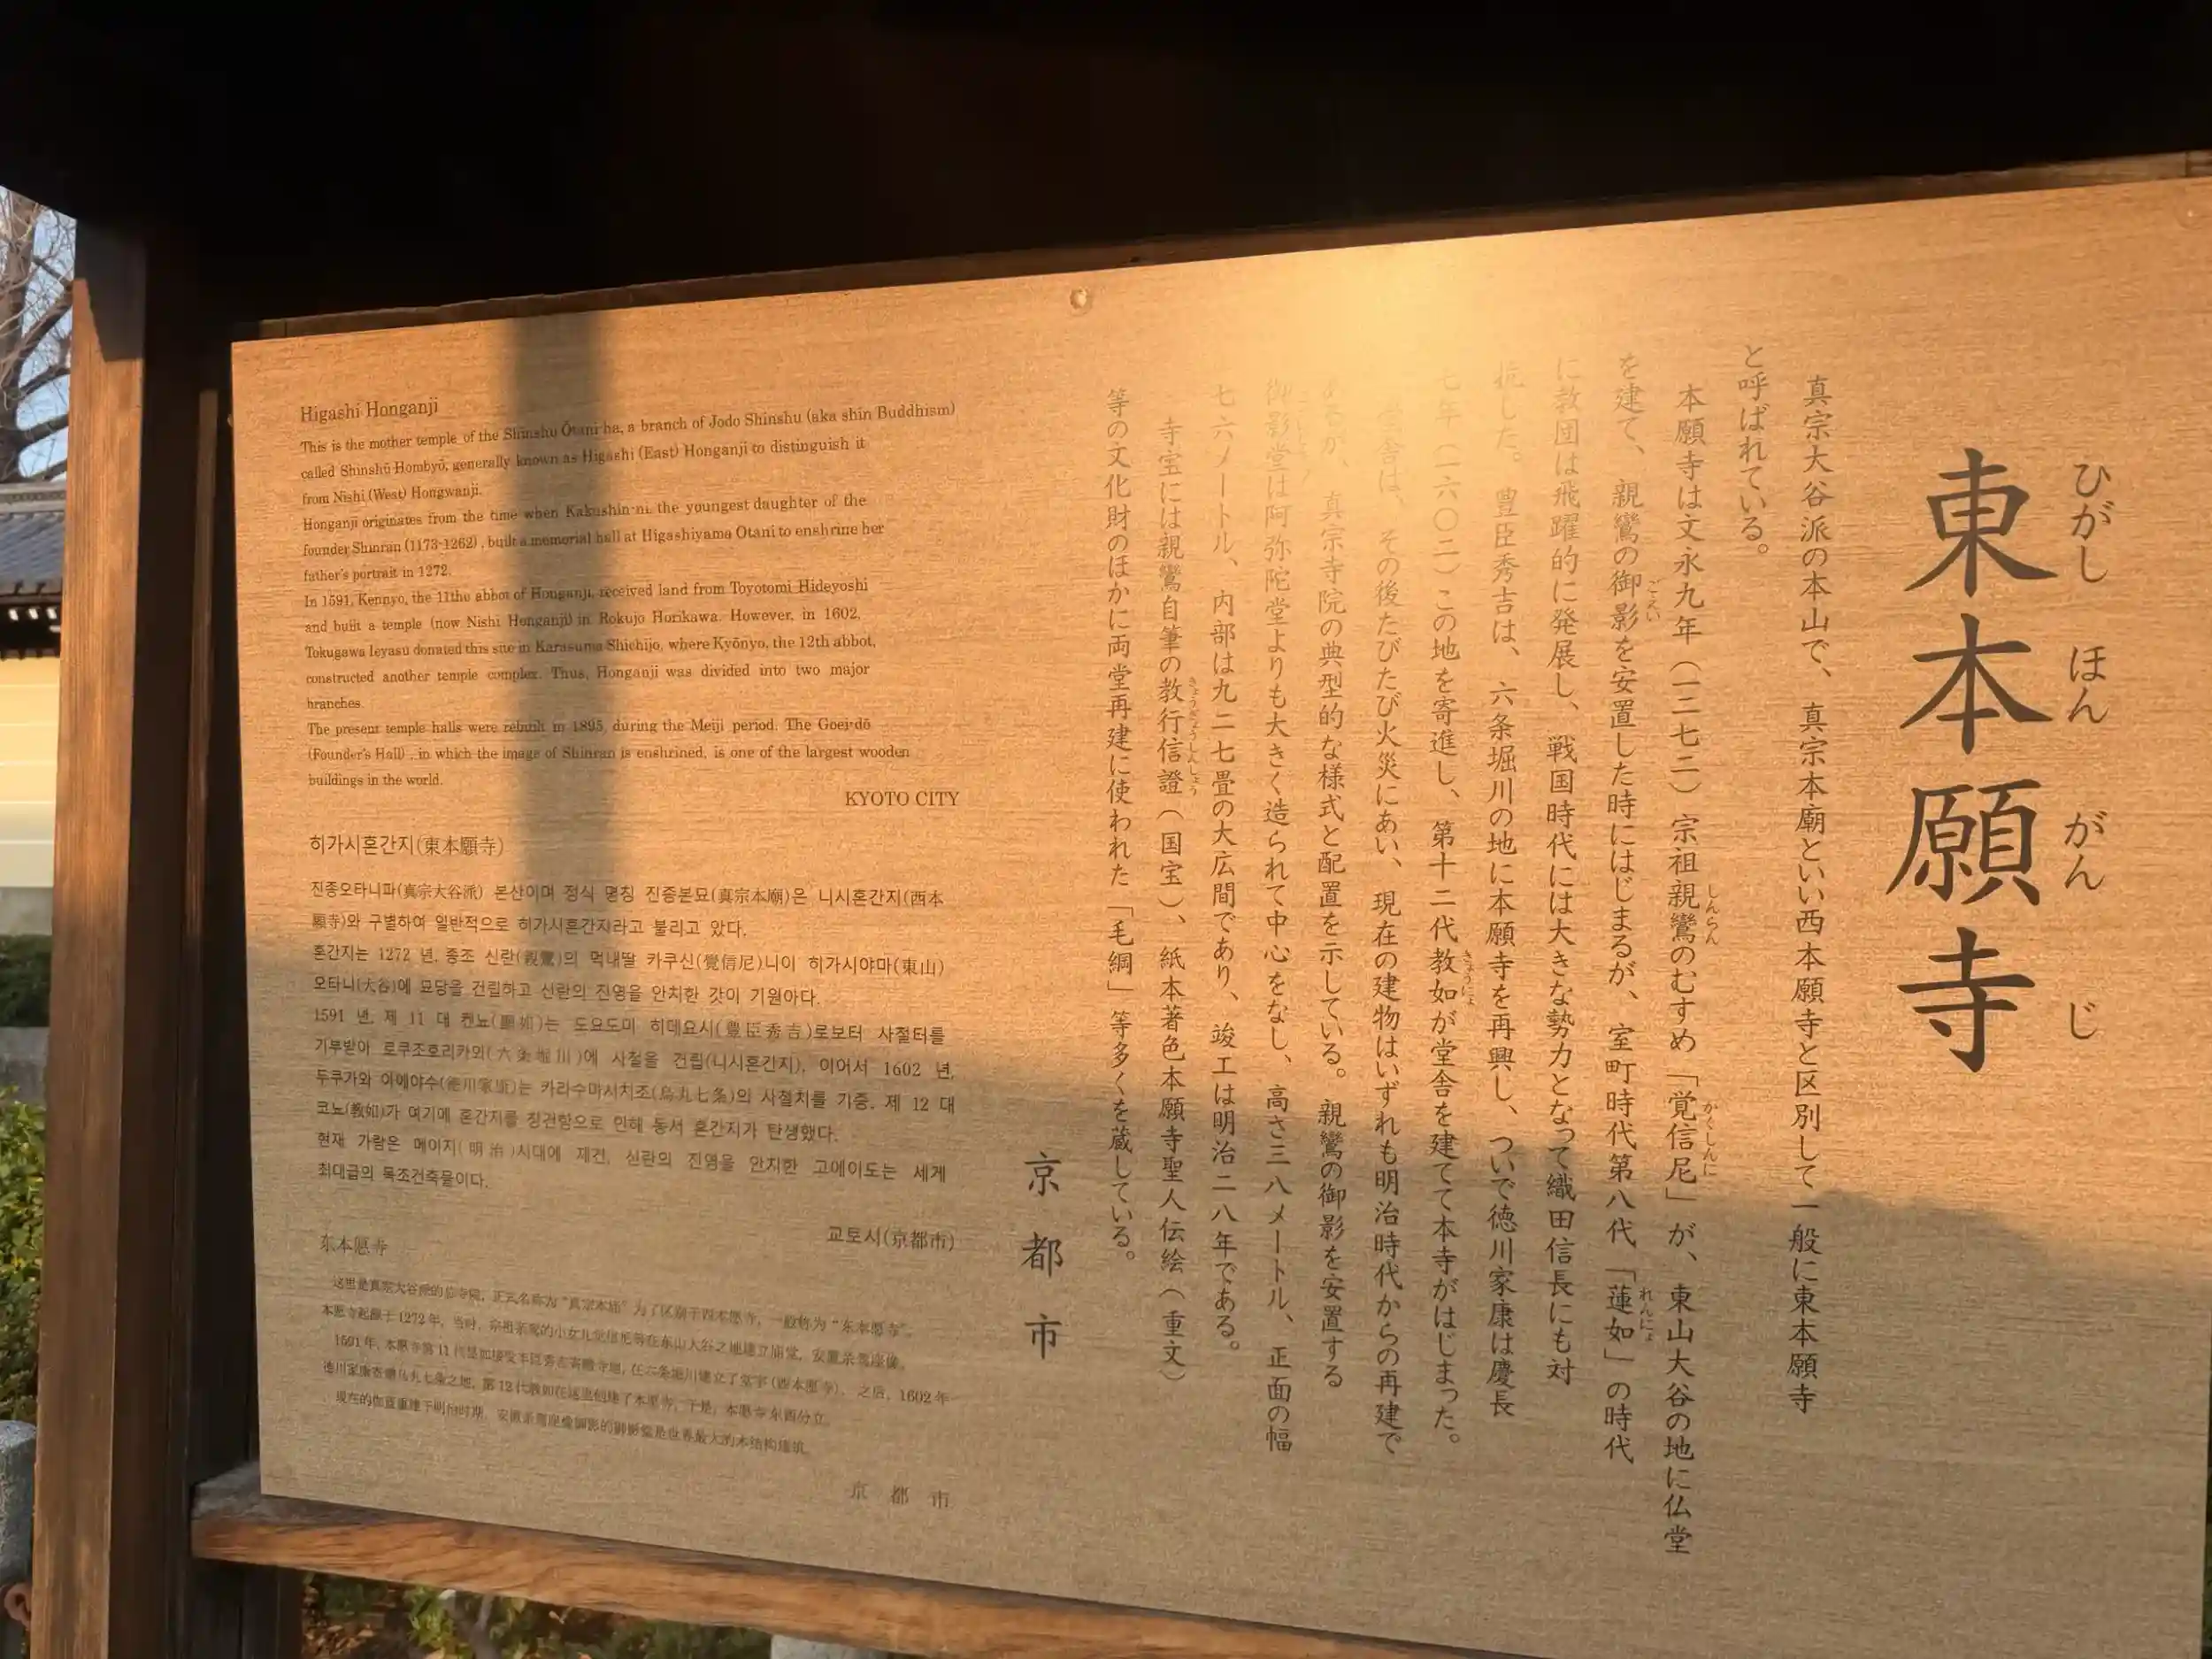 東本願寺
ひがし ほん がん じ
真宗大谷派の本山で、真宗本廟といい西本願寺と区別して一般に東本願寺
と呼ばれている。
本願寺は文永九年（一二七二）宗祖親鸞のむすめ「覚信尼」が、東山大谷の地に仏堂
しんらん かくしんに
を建て、親鸞の御影を安置した時にはじまるが、室町時代第八代「蓮如」の時代
ごえい れんにょ
に教団は飛躍的に発展し、戦国時代には大きな勢力となって織田信長にも対
抗した。豊臣秀吉は、六条堀川の地に本願寺を再興し、ついで徳川家康は慶長
七年（一六〇二）この地を寄進し、第十二代教如が堂舎を建てて本寺がはじまった。
きょうにょ
舎は、その後たびたび火災にあい、現在の建物はいずれも明治時代からの再建で
が、真宗寺院の典型的な様式と配置を示している。親鸞の御影を安置する
御影堂は阿弥陀堂よりも大きく造られて中心をなし、高さ三八メートル、正面の幅
七六メートル、内部は九二七畳の大広間であり、竣工は明治二八年である。
寺宝には親鸞自筆の教行信證（国宝）、紙本著色本願寺聖人伝絵（重文）
きょうぎょうしんしょう
等の文化財のほかに両堂再建に使われた「毛綱」等多くを蔵している。
京都市
Higashi Honganji
This is the mother temple of the Shinshu Ōtani ha, a branch of Jodo Shinshu (aka shin Buddhism)
called Shinshū Hombyō, generally known as Higashi (East) Honganji to distinguish it
from Nishi (West) Hongwanji.
Honganji originates from the time when Kakushin-ni, the youngest daughter of the
founder Shinran (1173-1262), built a memorial hall at Higashiyama Otani to enshrine her
father's portrait in 1272.
In 1591, Kennyo, the 11the abbot of Honganji, received land from Toyotomi Hideyoshi
and built a temple (now Nishi Honganji) in Rokujo Horikawa. However, in 1602,
Tokugawa Ieyasu donated this site in Karasuma Shichijo, where Kyōnyo, the 12th abbot,
constructed another temple complex. Thus, Honganji was divided into two major
branches.
The present temple halls were rebuilt in 1895, during the Meiji period. The Goei-dō
(Founder's Hall), in which the image of Shinran is enshrined, is one of the largest wooden
buildings in the world.
KYOTO CITY
히가시혼간지(東本願寺)
진종오타니파(真宗大谷派) 본산이며 정식 명칭 진종본묘(真宗本廟)은 니시혼간지(西本
願寺)와 구별하여 일반적으로 히가시혼간지라고 불리고 았다.
혼간지는 1272 년, 종조 신란(親鸞)의 막내딸 카쿠신(覺信尼)니이 히가시야마(東山)
오타니(大谷)에 묘당을 건립하고 신란의 진영을 안치한 것이 기원아다.
1591 년, 제 11 대 켄뇨(顯如)는 도요도미 히데요시(豊臣秀吉)로보터 사철터를
기부받아 로쿠조호리카와(六条堀川)에 사철을 건립(니시혼간지), 이어서 1602 년,
두쿠가와 이에야수(徳川家康)는 카라수마시치조(烏丸七条)의 사철치를 기증, 제 12 대
쿄뇨(教如)가 여기에 혼간지를 창건함으로 인해 동서 혼간지가 탄생했다.
현재 가람은 메이지(明治)시대에 재건, 신란의 진영을 안치한 고에이도는 세계
최대급의 목조건축물이다.
교토시(京都市)
东本愿寺
这里是真宗大谷派的总寺院，正式名称为“真宗本庙”为了区别于西本愿寺，一般称为“东本愿寺”。
本愿寺起源于1272年，当时，宗祖亲鸾的小女儿觉信尼等在东山大谷之地建立庙堂，安置亲鸾座像。
1591年，本愿寺第11代显如接受丰臣秀吉寄赠寺地，在六条堀川建立了堂宇（西本愿寺）。之后，1602年
德川家康寄赠乌丸七条之地，第12代教如在这里创建了本愿寺，于是，本愿寺东西分立。
现在的伽蓝重建于明治时期，安置亲鸾座像御影的御影堂是世界最大的木结构建筑。
京都市